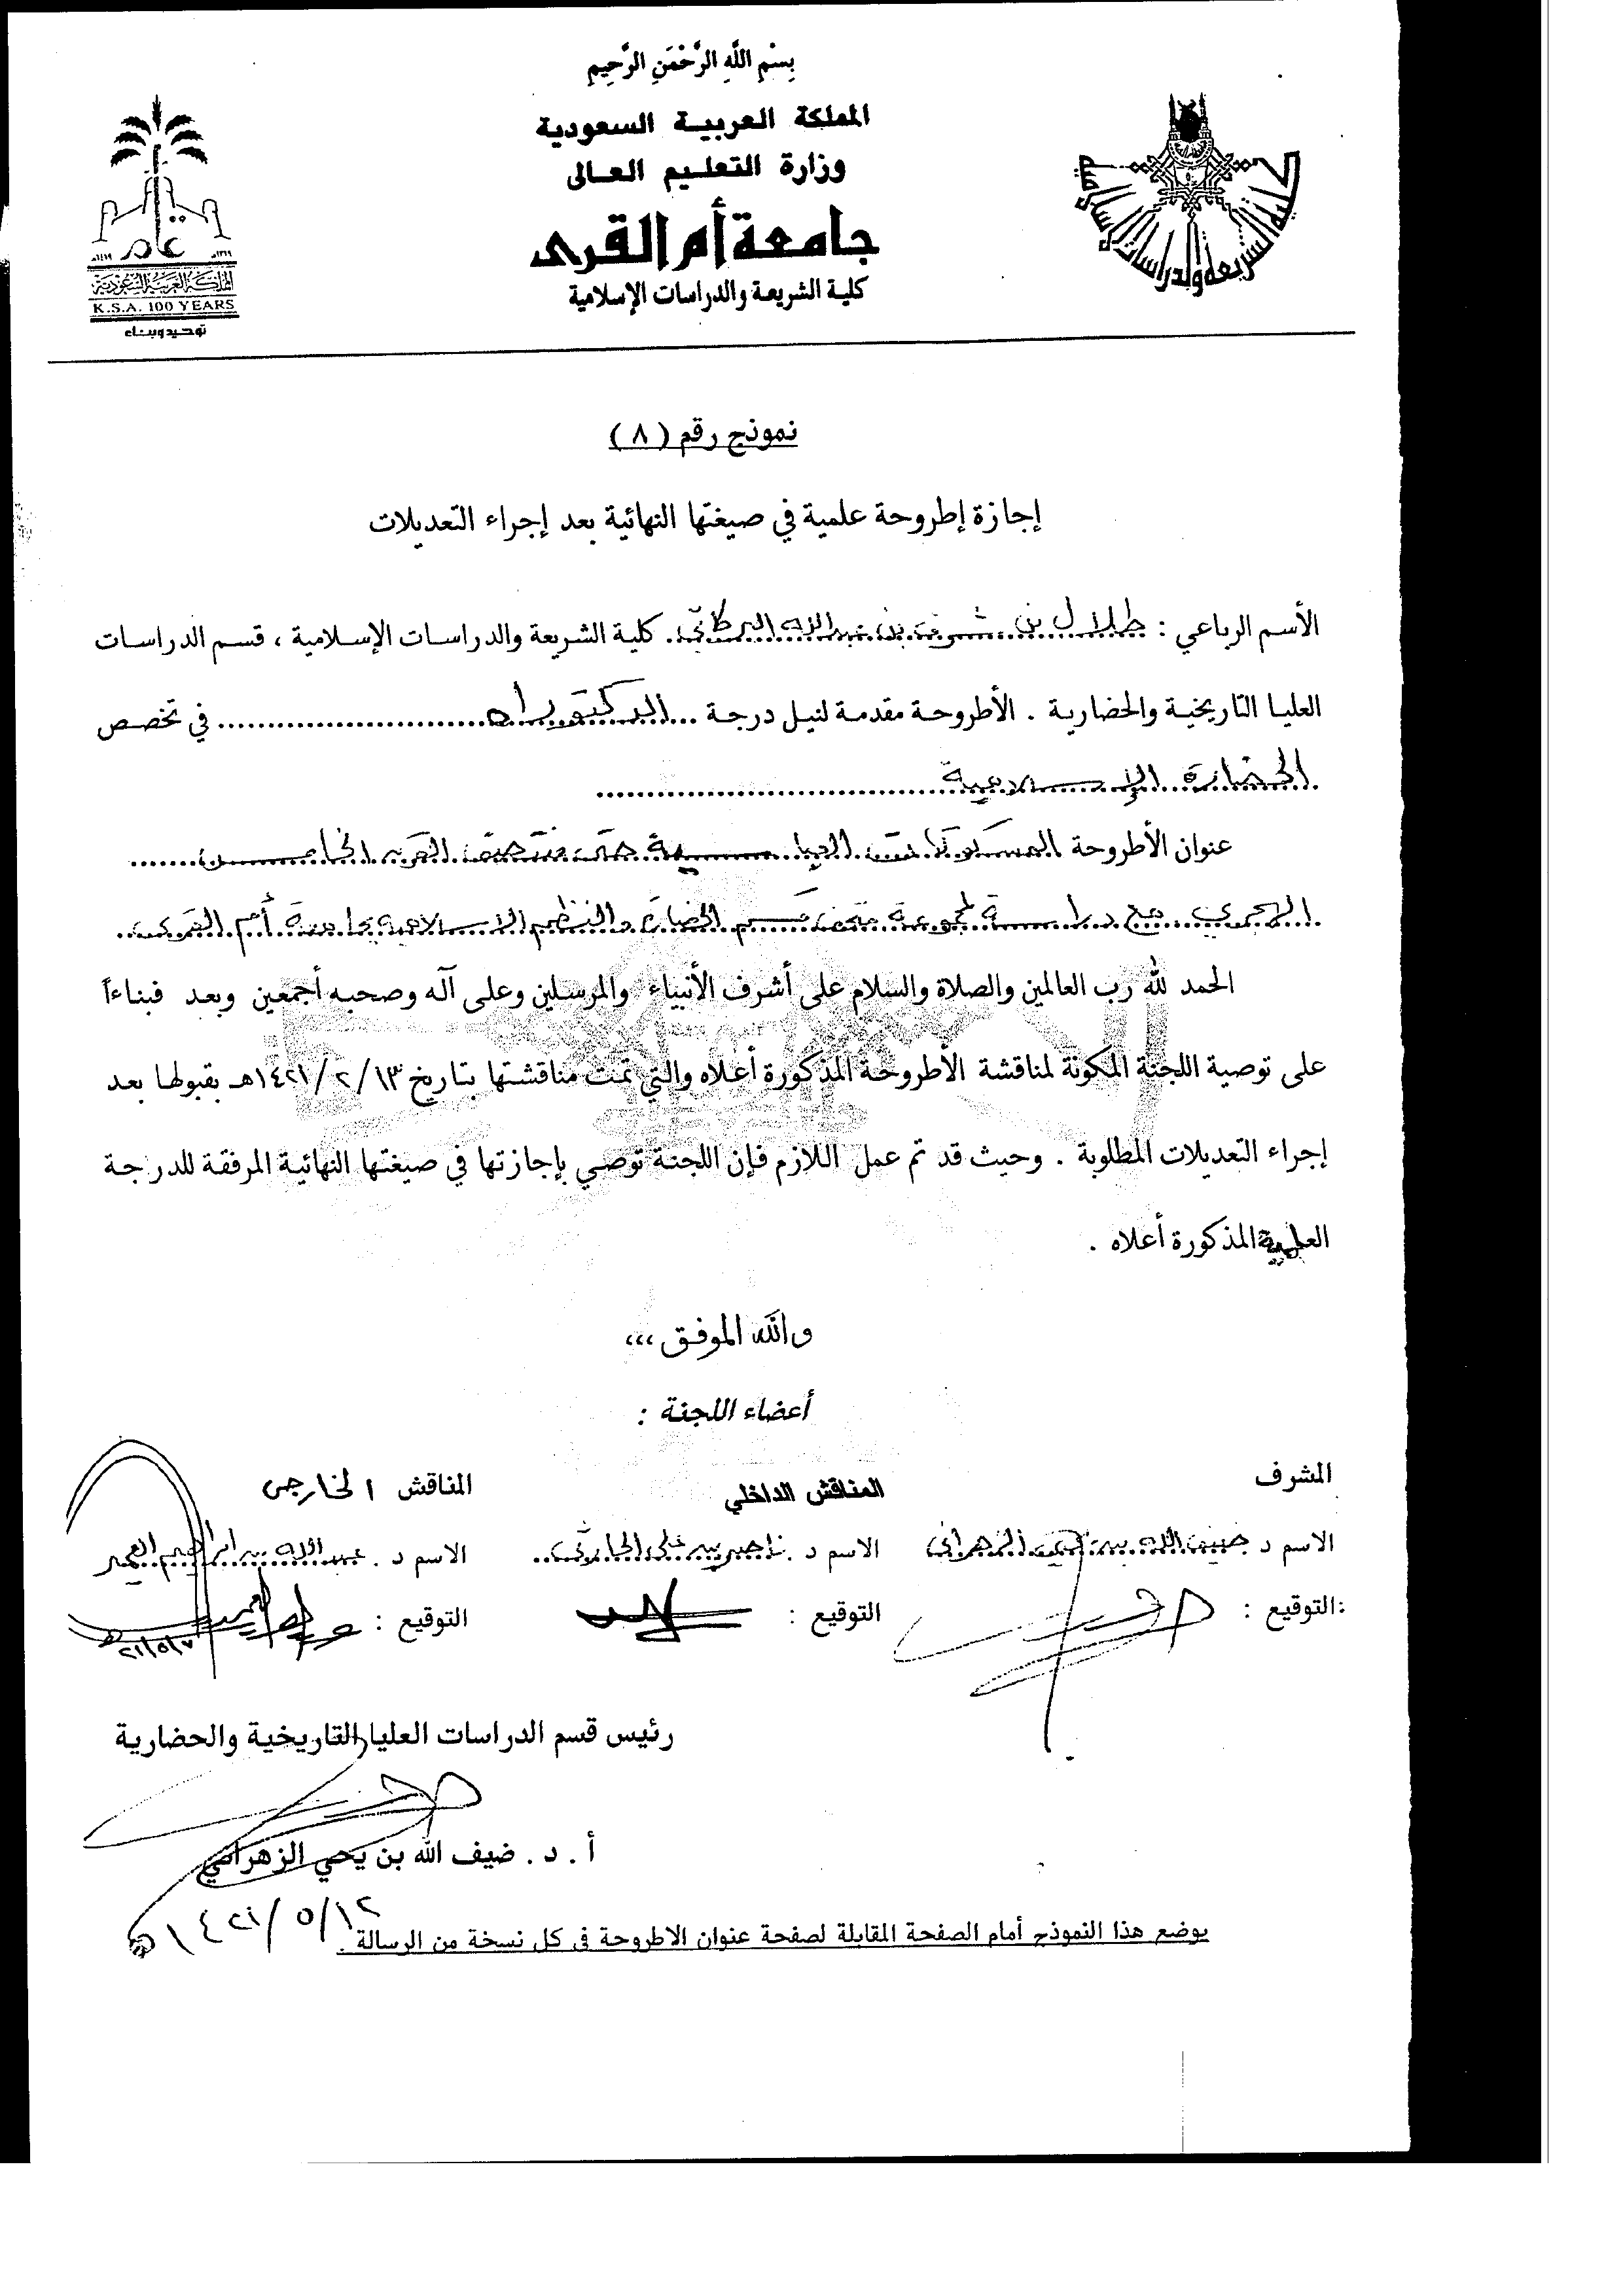 بِسْمِ اللَّهِ الرَّحْمَنِ الرَّحِيمِ
المملكة العربية السعودية
وزارة التعليم العالى
جامعة أم القرى
كلية الشريعة والدراسات الإسلامية
عام
المملكة العربية السعودية
K.S.A. 100 YEARS
توحيد وبناء
نموذج رقم ( ٨ )
إجازة إطروحة علمية في صيغتها النهائية بعد إجراء التعديلات
الأسم الرباعي : طلال بن شرف بن عبد الله البركاتي كلية الشريعة والدراسات الإسلامية ، قسم الدراسات
العليا التاريخية والحضارية . الأطروحة مقدمة لنيل درجة ... الدكتوراه ... في تخصص
الحضارة الإسلامية
عنوان الأطروحة المسكوكات العباسية حتى منتصف القرن الخامس
الهجري مع دراسة لمجموعة متحف قسم الحضارة والنظم الإسلامية بجامعة أم القرى
الحمد لله رب العالمين والصلاة والسلام على أشرف الأنبياء والمرسلين وعلى آله وصحبه أجمعين وبعد فبناءاً
على توصية اللجنة المكونة لمناقشة الأطروحة المذكورة أعلاه والتي تمت مناقشتها بتاريخ ١٣ / ٢ / ١٤٢١هـ بقبولها بعد
إجراء التعديلات المطلوبة . وحيث قد تم عمل اللازم فإن اللجنة توصي بإجازتها في صيغتها النهائية المرفقة للدرجة
العلمية المذكورة أعلاه .
والله الموفق ،،،
أعضاء اللجنة :
المشرف
المناقش الداخلي
المناقش الخارجي
الاسم د ضيف الله بن يحيى الزهراني
الاسم د . ناصر بن علي الحارثي
الاسم د . عبد الله بن إبراهيم العمير
التوقيع :
التوقيع :
التوقيع :
٢١/٥/٧
رئيس قسم الدراسات العليا التاريخية والحضارية
أ . د . ضيف الله بن يحي الزهراني
١٢/ ٥ / ١٤٢١هـ
يوضع هذا النموذج أمام الصفحة المقابلة لصفحة عنوان الاطروحة في كل نسخة من الرسالة .